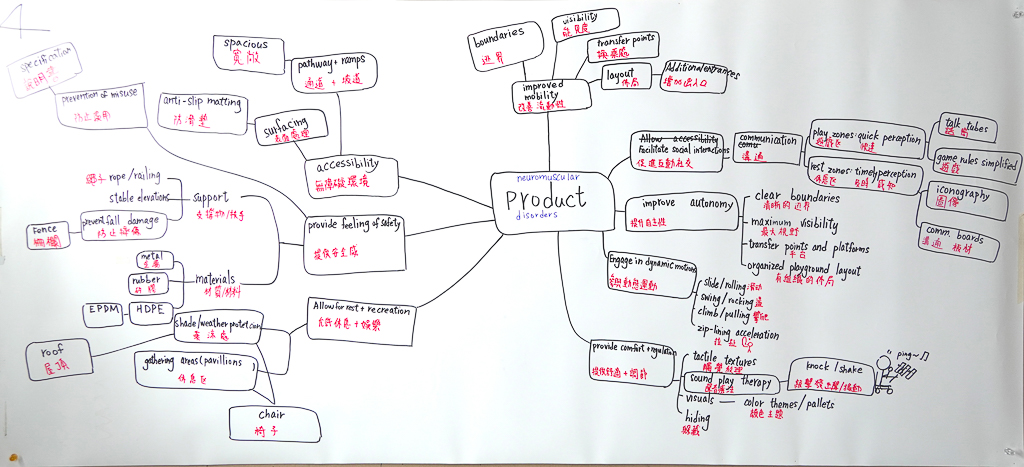 4
neuromuscular
Product
disorders
improved
mobility
改善流動性
boundaries
邊界
visibility
能見度
transfer points
layout
佈局
Additional entrances
增加出入口
Allow accessibility
Facilitate social interactions
促進互動社交
communication
溝通
play zones: quick perception
遊戲區 快速
talk tubes
game rules simplified
遊戲
rest zones: timely perception
休息區
iconography
圖像
comm. boards
溝通 板材
improve autonomy
提升自主性
clear boundaries
清晰的邊界
maximum visibility
最大視野
transfer points and platforms
平台
organized playground layout
有組織的佈局
Engage in dynamic motions
slide/rolling 滑动
swing/rocking
climb/pulling 攀爬
zip-lining acceleration
provide comfort + regulation
提供舒適+調節
tactile textures
觸覺紋理
sound play therapy
knock / shake
ping~♫
visuals
color themes/pallets
顏色主題
hiding
隱藏
accessibility
無障礙環境
pathway + ramps
通道 + 坡道
spacious
寬敞
surfacing
表面處理
anti-slip matting
防滑墊
provide feeling of safety
提供安全感
prevention of misuse
防止濫用
specification
說明書
support
支撐物/扶手
繩子 rope/railing
stable elevations
prevent fall damage
防止摔傷
Fence
柵欄
materials
材質/材料
metal
金屬
rubber
HDPE
EPDM
Allow for rest + recreation
允許休息+娛樂
shade/weather protection
roof
屋頂
gathering areas (pavillions)
休息區
chair
椅子